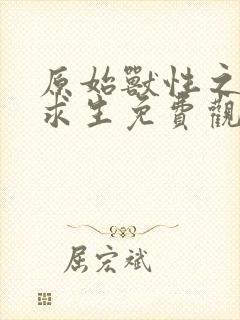 原始獸性之
求生免費觀
屈宏斌